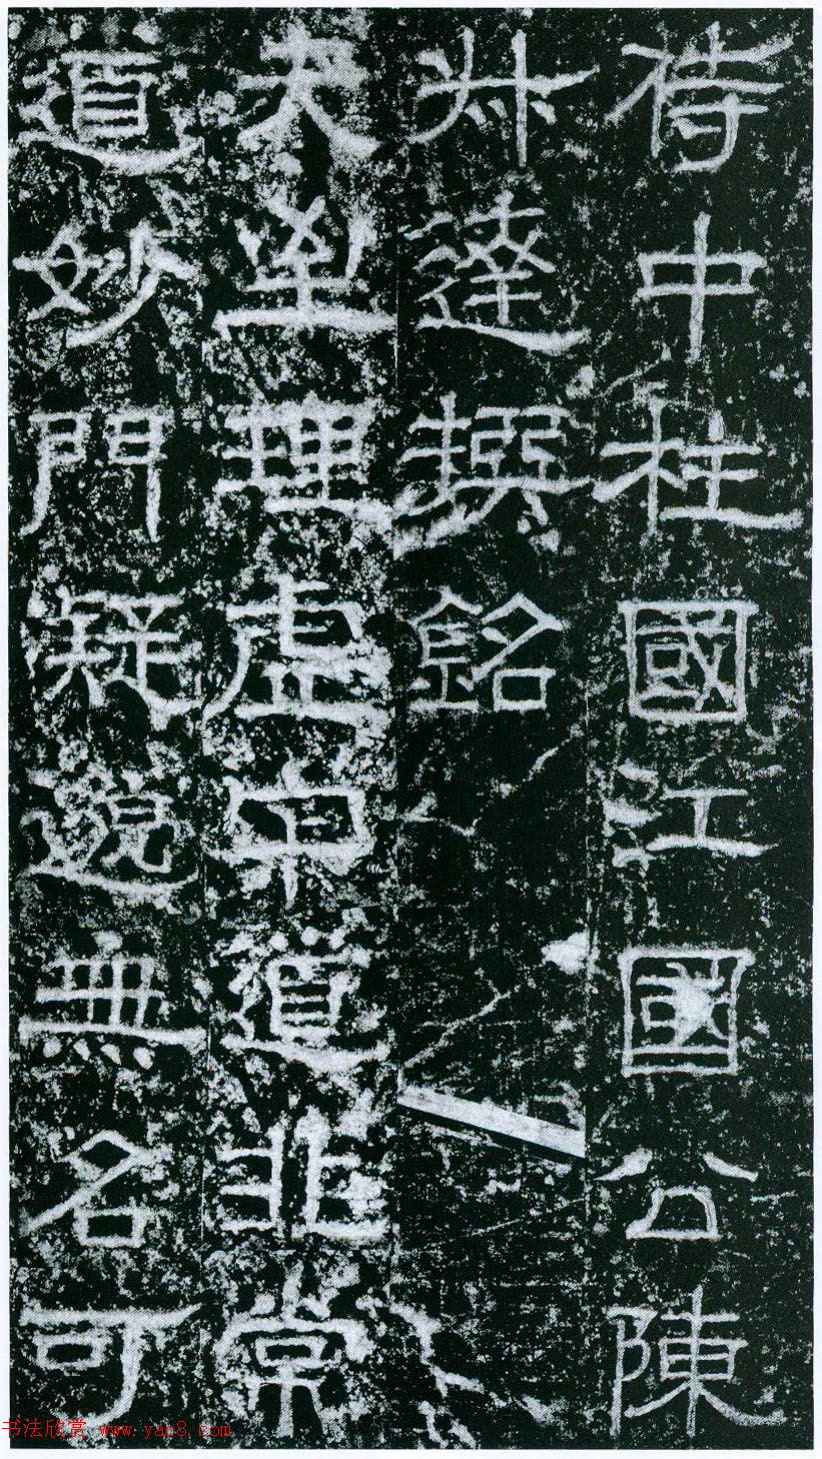 侍中柱國江國公陳
叔達撰銘
夫至理虚中道非常
道妙門疑邈無名可
书法欣赏 www.yac8.com